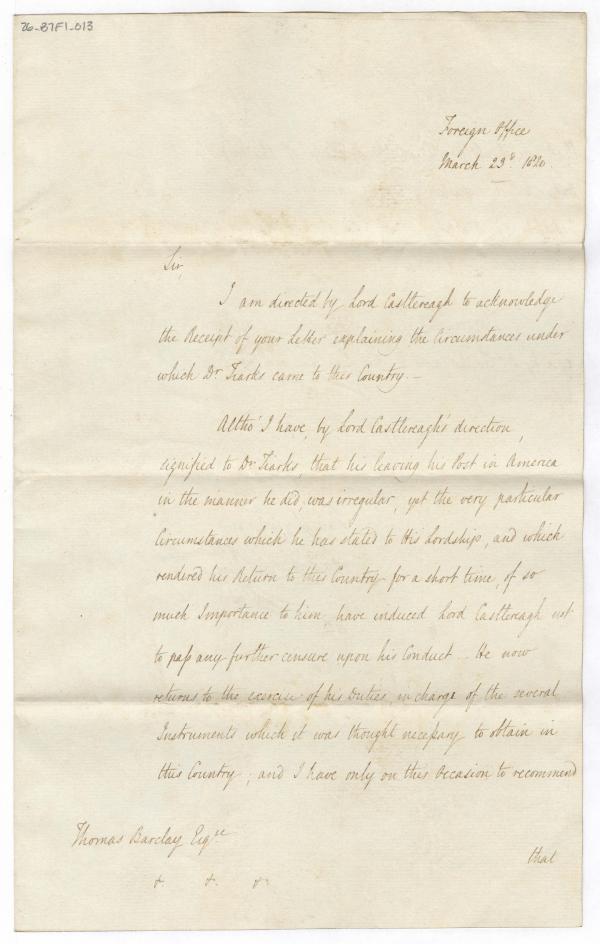 76-B7F1-013
Foreign Office
March 23d. 1820.
Sir,
I am directed by Lord Castlereagh to acknowledge
the Receipt of your Letter explaining the Circumstances under
which Dr Tiarks came to this Country. –
Altho' I have, by Lord Castlereagh's direction,
signified to Dr Tiarks, that his leaving his Post in America
in the manner he did, was irregular, yet the very particular
Circumstances which he has stated to His Lordship, and which
rendered his Return to this Country for a short time, of so
much Importance to him, have induced Lord Castlereagh not
to pass any further censure upon his Conduct – He now
returns to the exercise of his Duties, in charge of the several
Instruments which it was thought necessary to obtain in
this Country; and I have only on this Occasion to recommend
Thomas Barclay Esqre
that
&. &. &.